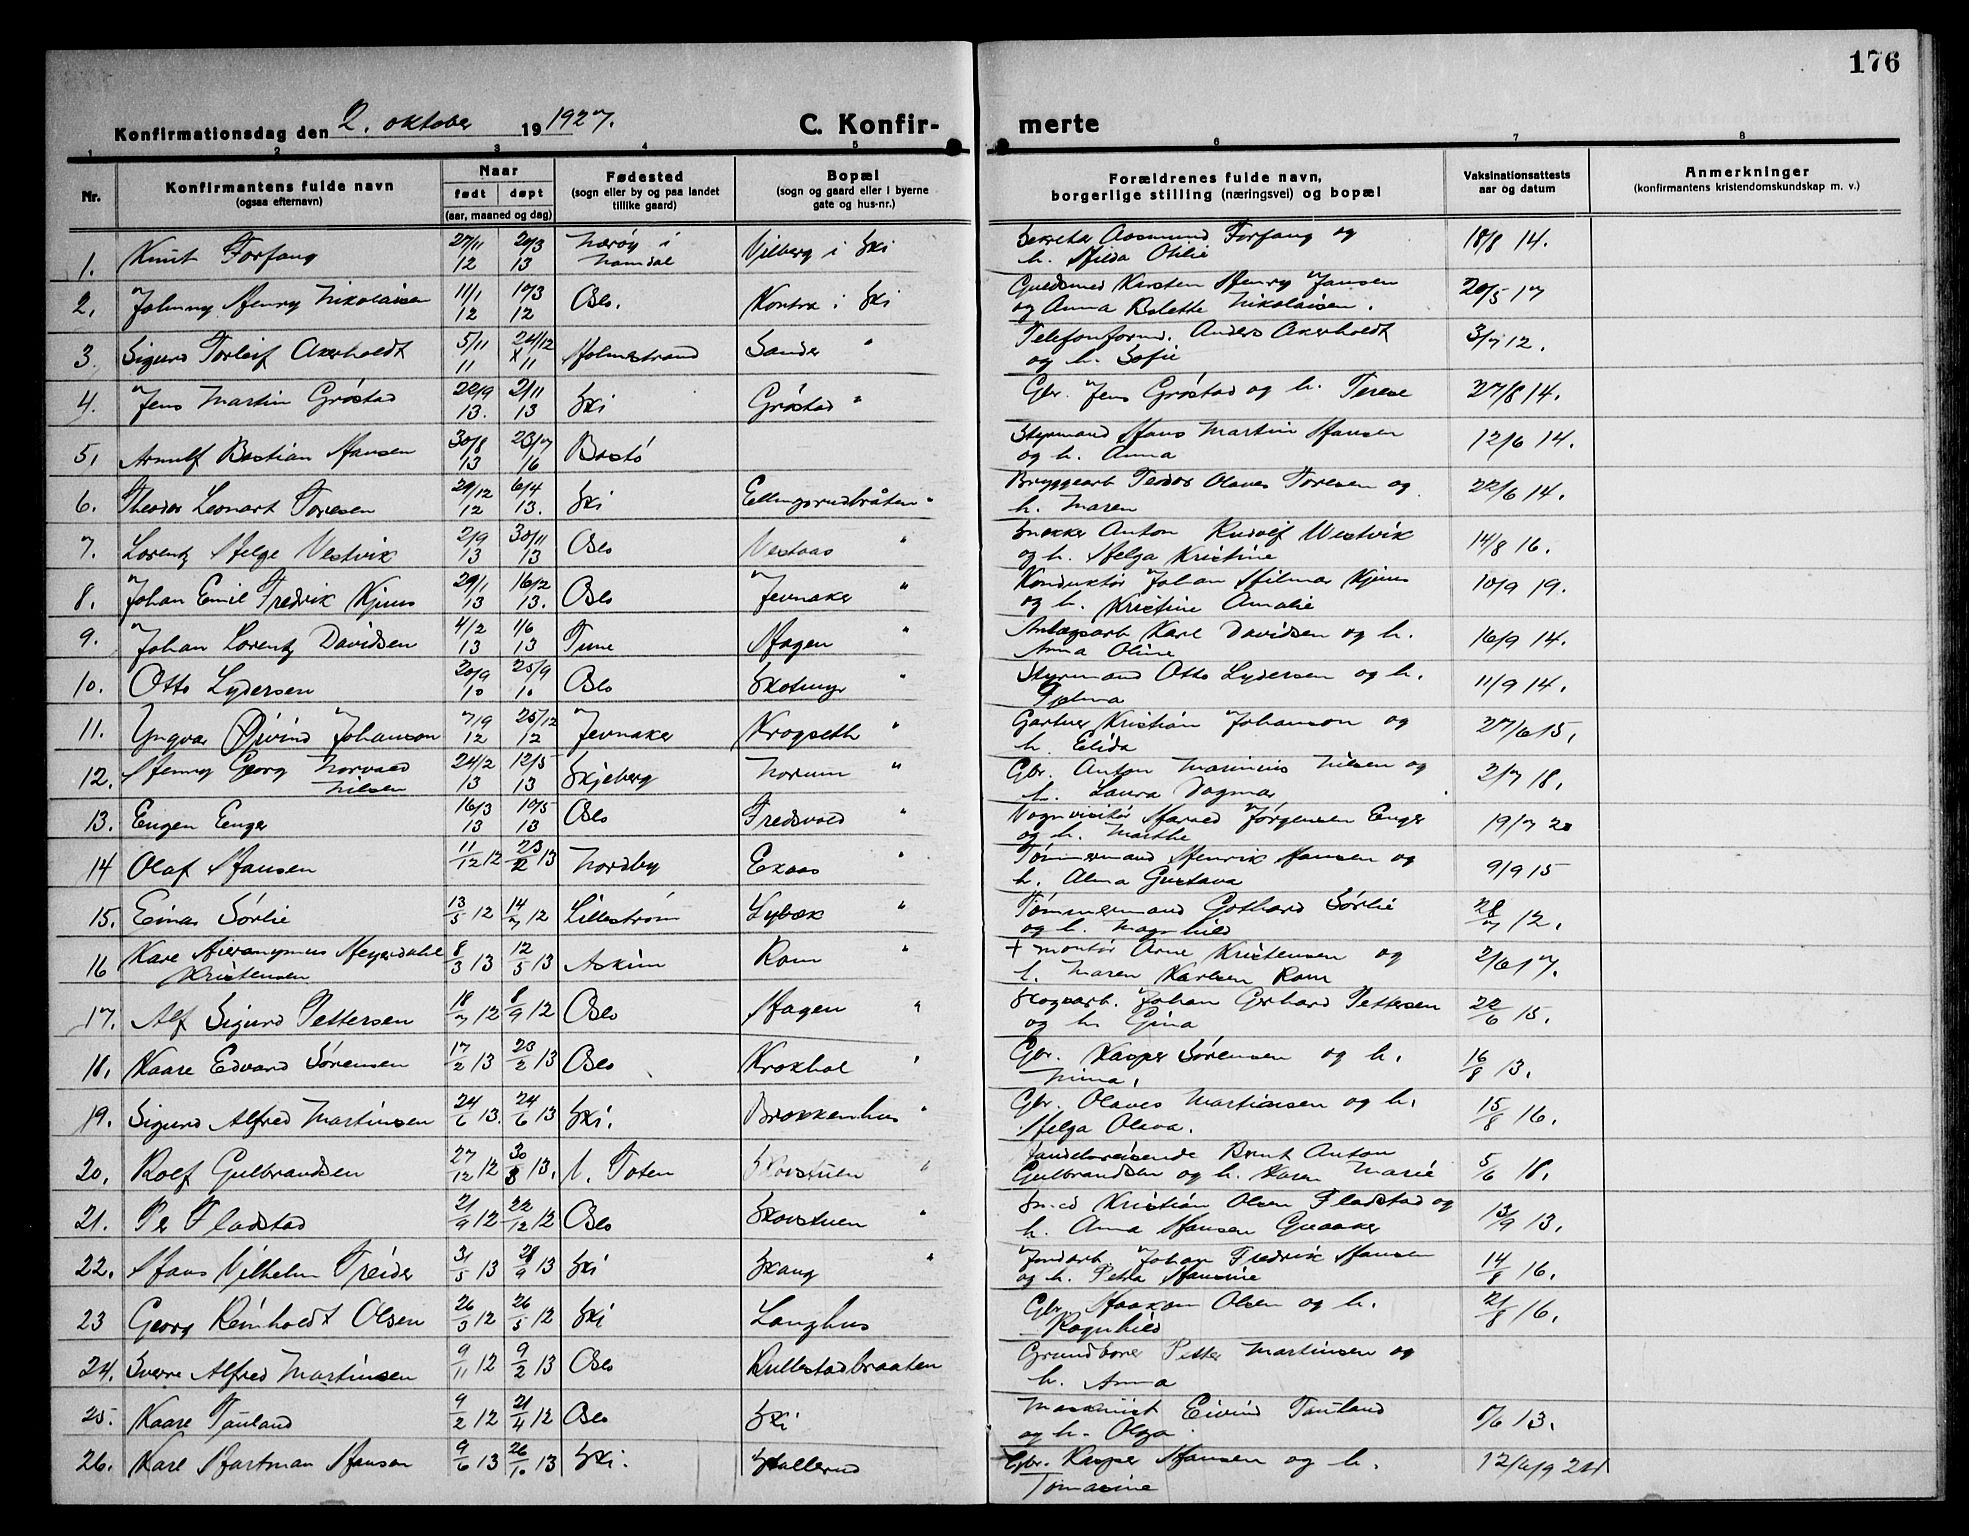 176
Konfirmationsdag den 2. oktober 19 1927. C. Konfir- merte
1 2 3 4 5 6 7 8
Nr. Konfirmantens fulde navn (ogsaa efternavn) Naar født døpt (aar, maaned og dag) Fødested (sogn eller by og paa landet tillike gaard) Bopæl (sogn og gaard eller i byerne gate og hus-nr.) Forældrenes fulde navn, borgerlige stilling (næringsvei) og bopæl Vaksinationsattests aar og datum Anmerkninger (konfirmantens kristendomskundskap m. v.)
1. Knut Forfang 27/11 12 20/3 13 Nærøy i Namdal Vilberg i Ski Sekretær Aasmund Forfang og h. Hilda Otilie 18/8 14.
2. Johnny Henry Nikolaisen 11/1 12 10/3 12 Oslo. Kontra i Ski Guldsmed Karsten Henry Jansen og Anna Bolette Nikolaisen. 20/5 17
3. Sigurd Torleif Akerholdt 5/11 11 24/12 x 11 Holmestrand Sander " Telefonformd. Anders Akerholdt og h. Sofie 3/7 12.
4. Jens Martin Grøstad 22/9 13. 2/11 13 Ski Grøstad " Gbr. Jens Grøstad og h. Terese 27/8 14.
5. Arnulf Bastian Hansen 30/8 13 23/7 16 Bastø Styrmand Hans Martin Hansen og h. Anna 12/6 14.
6. Theodor Leonart Toresen 29/12 12 6/4 13. Ski Ellingsrudbråten " Bryggearb Teodor Olaves Toresen og h. Maren 22/6 14.
7. Lorentz Helge Vestvik 2/9 13 30/11 13 Oslo Vestaas " Snekker Anton Rudolf Westvik og h. Helga Kristine 14/8 16.
8. Johan Emil Fredrik Kjuus 29/1 13 16/2 13. Oslo Jevnaker " Konduktør Johan Hilmar Kjuus og h. Kristine Amalie 10/9 19.
9. Johan Lorentz Davidsen 4/2 13 1/6 13 Tune Hagen " Anlægsarb Karl Davidsen og h. Anna Oline 16/9 14.
10. Otto Lydersen 20/9 10 25/9 10 Oslo Skotmyr " Styrmand Otto Lydersen og h. 11/9 14.
11. Yngvar Øivind Johanson 7/9 12 25/12 12 Jevnaker Krogseth " Gartner Kristian Johanson og h. Elida 27/6 15.
12. Henry Georg Norvald Nilsen 24/2 13 12/5 13 Skjeberg Norum " Gbr. Anton Marinius Nilsen og h. Laura Dagmar 2/7 18.
13. Eugen Enger 16/3 13 10/5 13 Oslo Fredsvold " Vognvisitør Harald Jørgensen Enger og h. Marthe 19/7 20
14 Olaf Hansen 11/12 12 23/2 13 Nordby Exaas " Tømmermand Henrik Hansen og h. Alma Gustava 9/9 15
15. Einar Sørlie 13/5 12 14/7 12 Lillestrøm Lybæk " Tømmermand Gothard Sørlie og h. Magnhild 28/7 12.
16 Kare Hieronymus Heyerdahl Kristensen 8/3 13 12/5 13 Askim Rom " + montør Arne Kristensen og h. Maren Karlsen Rom 2/6 17.
17. Alf Sigurd Pettersen 18/7 12 8/9 12 Oslo Hagen " Skogsarb. Johan Gerhard Pettersen og h. Gina 22/6 15.
18. Kaare Edvard Sørensen 17/2 13 23/2 13 Oslo Krokhol " Gbr. Kasper Sørensen og h. Mina. 16/8 13.
19. Sigurd Alfred Martinsen 24/6 13. 24/6 13 Ski. Brokkenhus " Gbr. Olaves Martinsen og h. Helga Olava. 15/8 16.
20. Rolf Gulbrandsen 27/12 12 30/3 13. V. Toten Skovstuen " Handelsreisende Bernt Anton Gulbrandsen og h. Karen Marie 5/6 18.
21. Per Fladstad 21/9 12 22/12 12 Oslo Skovstuen " Smed Kristian Olsen Fladstad og h. Anna Hansen Graaker 13/9 13.
22. Hans Vilhelm Treider 31/5 13 28/9 13 Ski Skaug " Jordarb. Johan Fredrik Hansen og h. Petra Hansine 14/8 16.
23 Georg Reinholdt Olsen 26/3 12 26/5 12 Ski Langhus Gbr. Haakon Olsen og h. Ragnhild 21/8 16.
24. Sverre Alfred Martinsen 9/11 12 9/2 13 Oslo Kullestadbraaten Grundborer Petter Martinsen og h. Anna
25. Kaare Tauland 9/2 12 21/4 12 Oslo Ski Maskinist Eivind Tauland og h. Olga 13.
26. Karl Hartman Hansen 9/6 13 26/10 13 Ski. Skallerud Gbr. Kasper Hansen og h. Tomasine